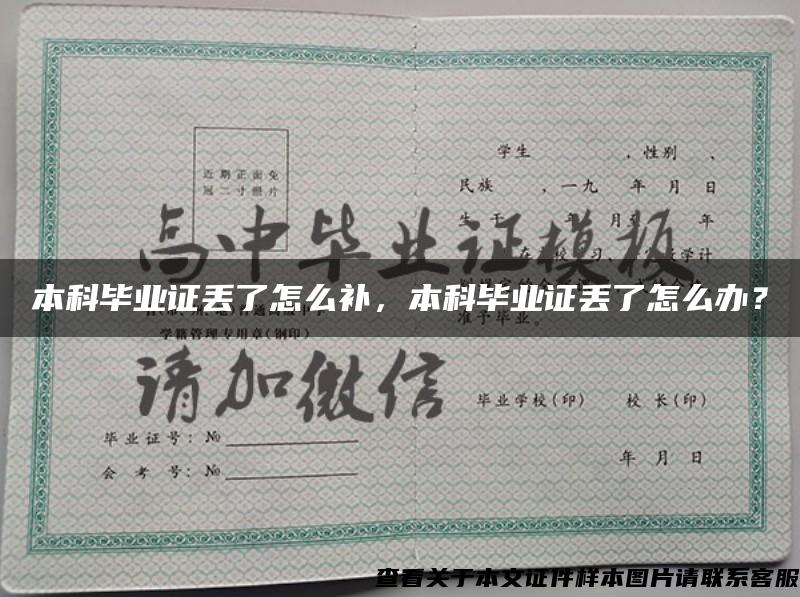 近期正面免
冠二寸照片
学籍管理专用章(钢印)
毕业证号：№
会考号：№
学生 ，性别 、
民族 ，一九 年 月 日
准予毕业。
毕业学校(印) 校长(印)
年 月 日
高中毕业证模板
请加微信
本科毕业证丢了怎么补，本科毕业证丢了怎么办？
查看关于本文证件样本图片请联系客服